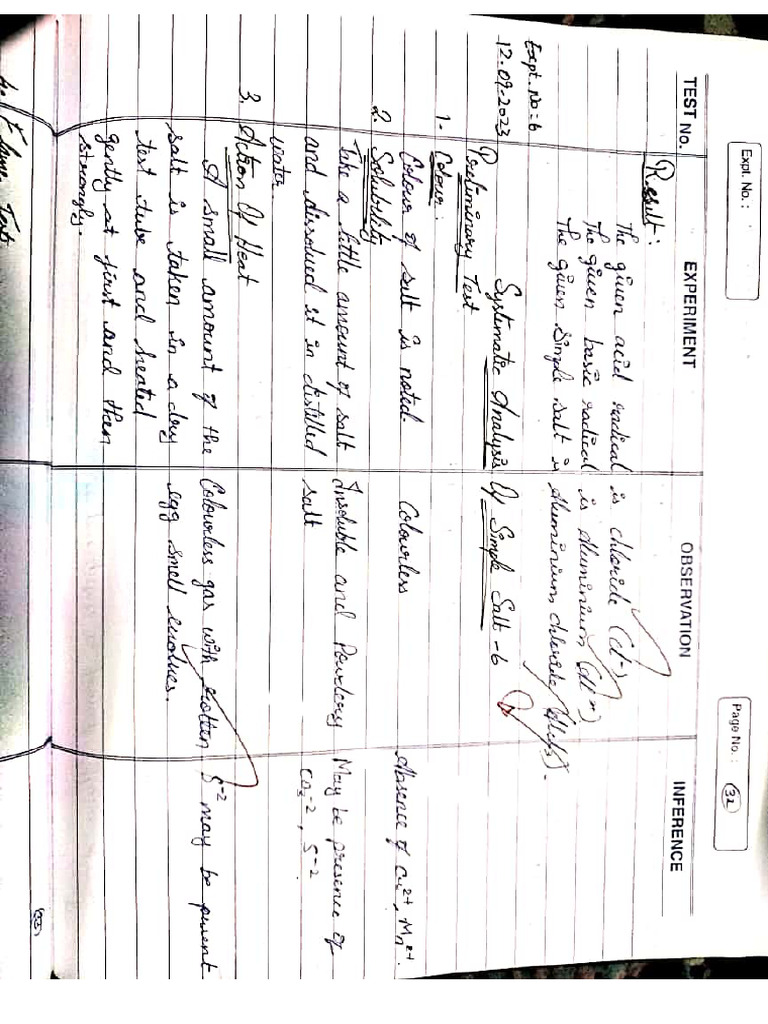 Expl. No.:
Page No.: 32
TEST No. EXPERIMENT OBSERVATION INFERENCE
Result:
The given acid radical is chloride (Cl⁻)
The given basic radical is Aluminium (Al³⁺)
The given Simple salt is Aluminium chloride (AlCl₃).
Expt. No=6
12-09-2023
Systematic Analysis Of Simple Salt -6
Preliminary Test
1. Colour:
Colour of salt is noted. Colourless Absence of Cu²⁺, Mn²⁺.
2. Solubility
Take a little amount of salt Insoluble and Powdery May be presence of
and dissolved it in distilled salt CO₃⁻², S⁻²
water.
3. Action Of Heat
A small amount of the Colourless gas with rotten S⁻² may be present
salt is taken in a dry egg smell evolves.
test tube and heated
gently at first and then
strongly.
33
4. Flame Test